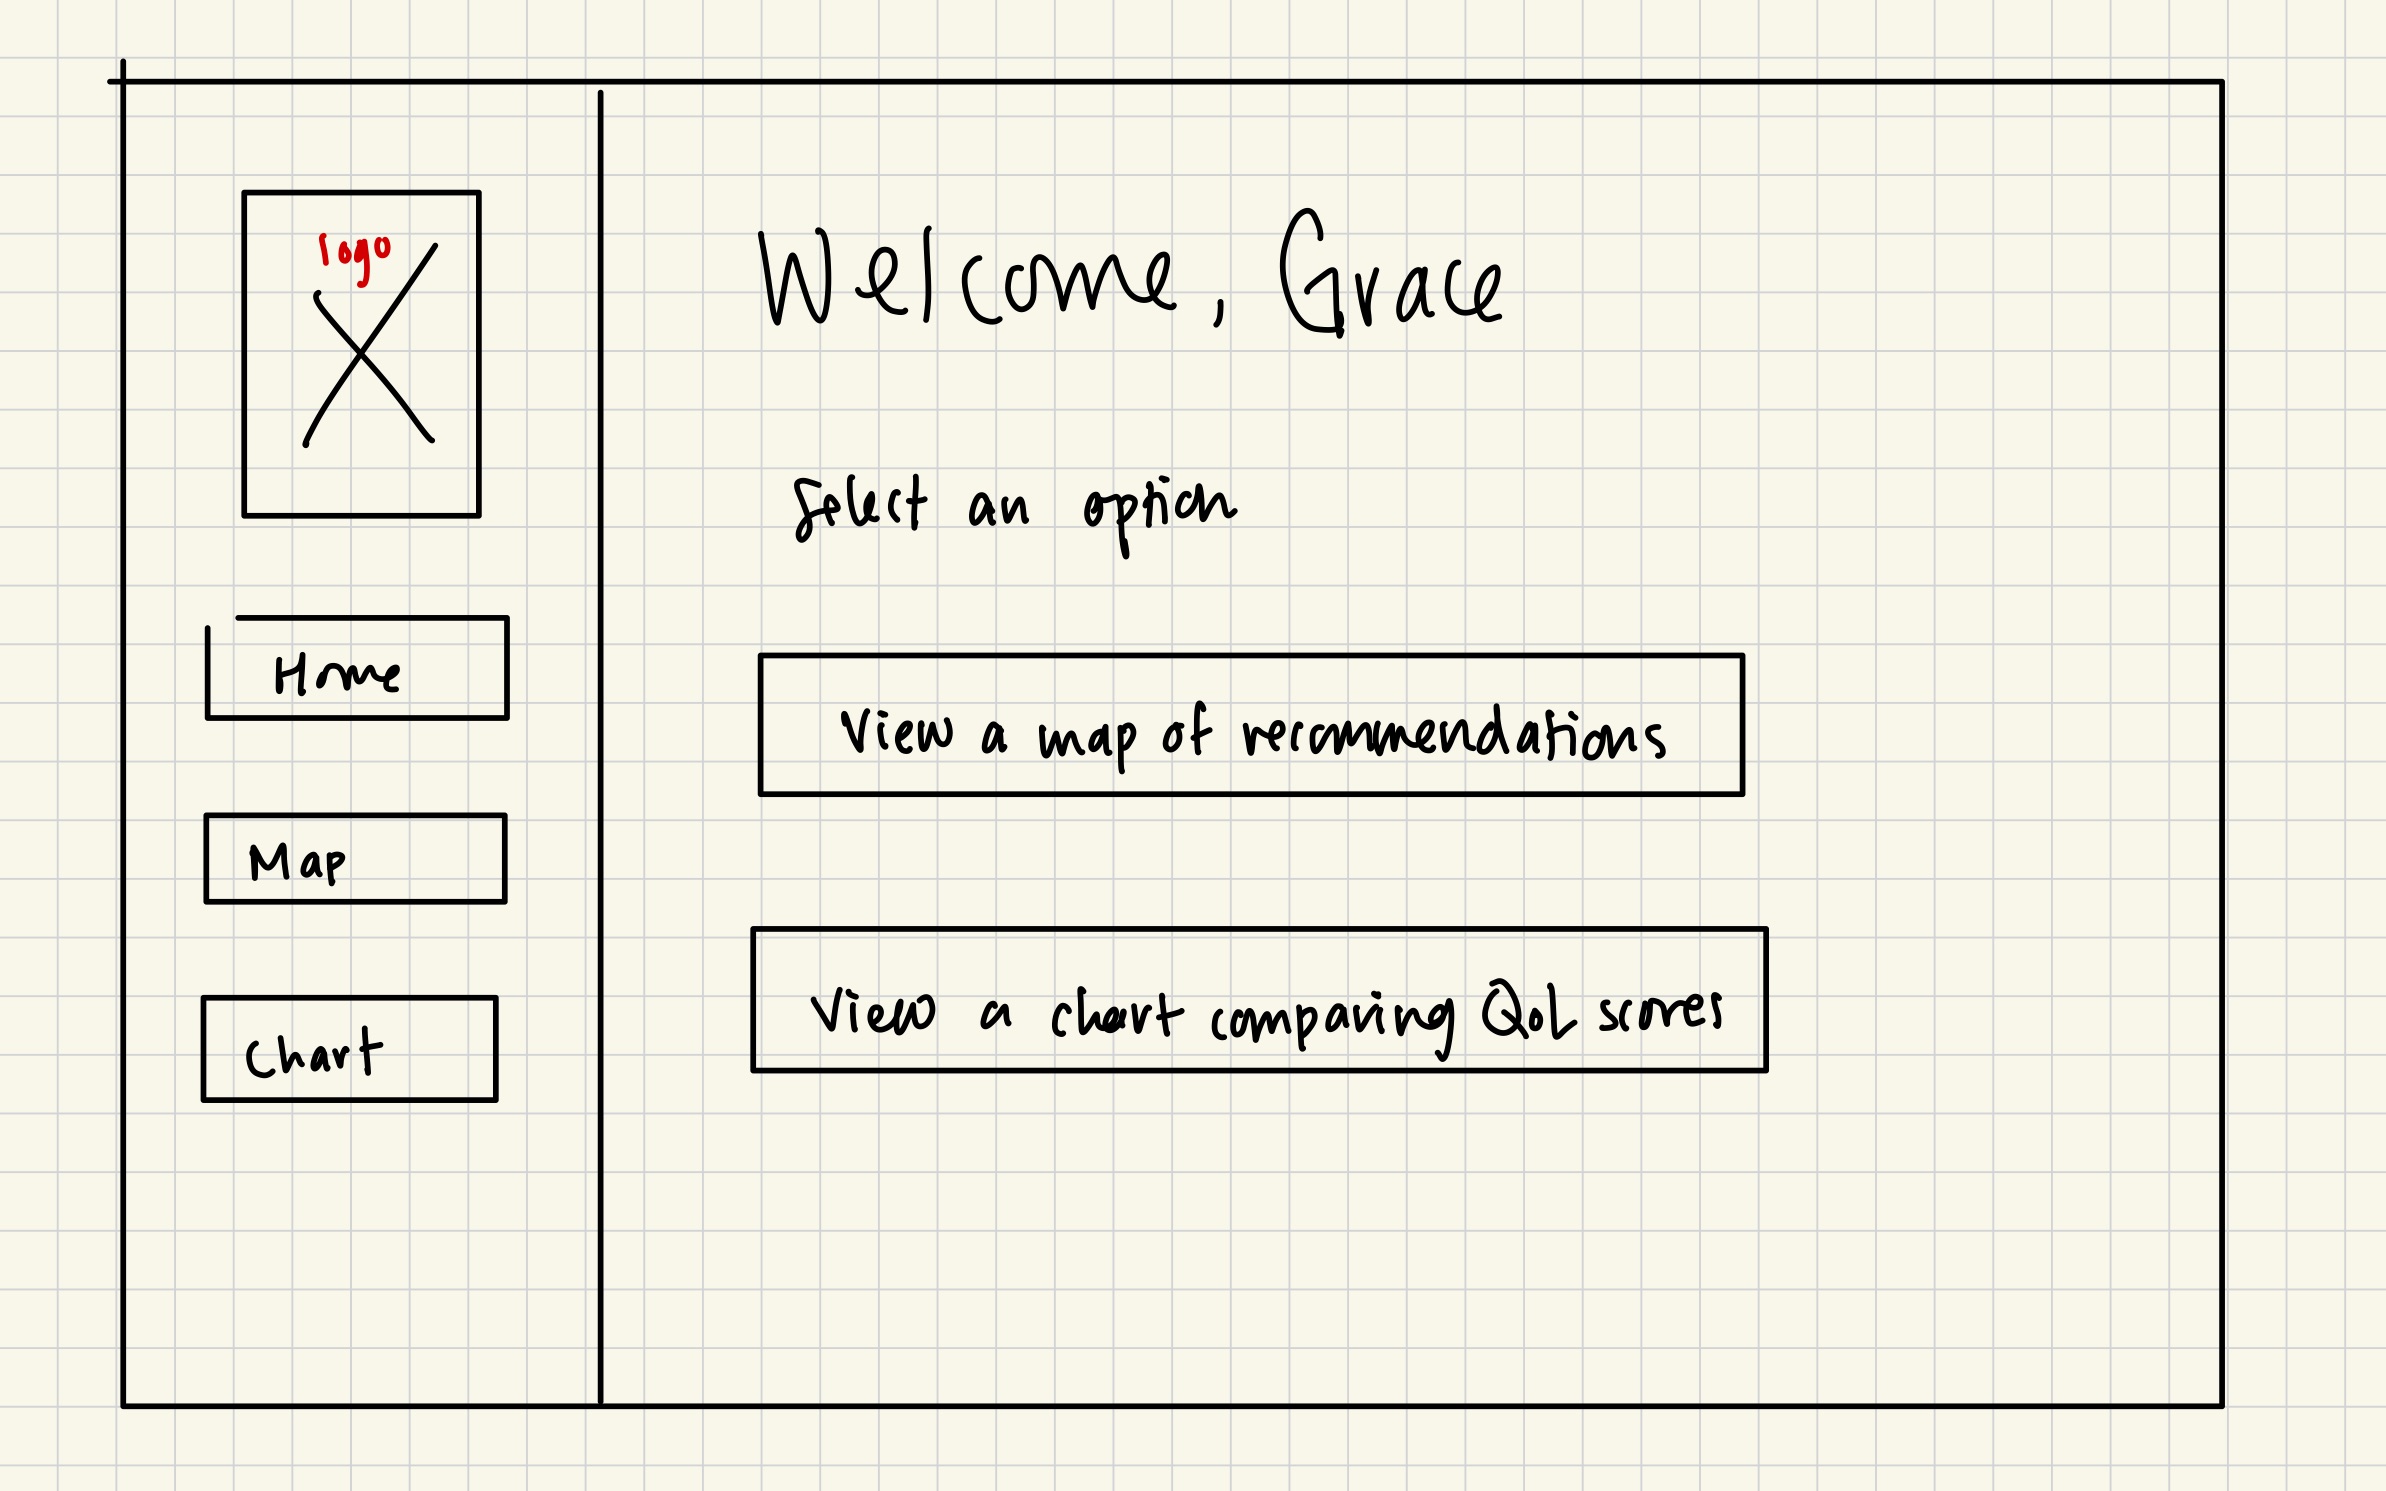 logo
Home
Map
Chart
Welcome, Grace
Select an option
View a map of recommendations
View a chart comparing QoL scores